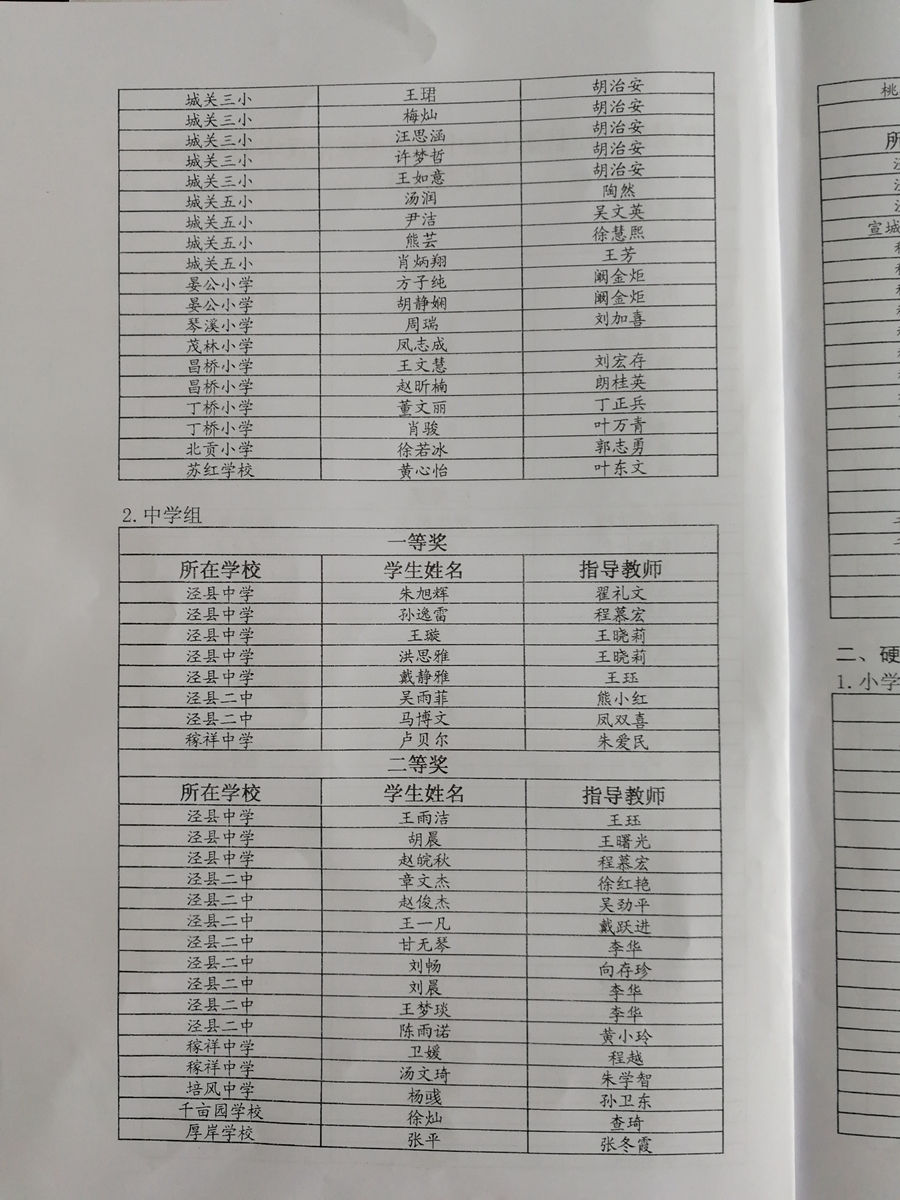 城关三小 王珺 胡治安
城关三小 梅灿 胡治安
城关三小 汪思涵 胡治安
城关三小 许梦哲 胡治安
城关三小 王如意 胡治安
城关五小 汤润 陶然
城关五小 尹洁 吴文英
城关五小 熊芸 徐慧熙
城关五小 肖炳翔 王芳
晏公小学 方子纯 阚金炬
晏公小学 胡静娴 阚金炬
琴溪小学 周瑞 刘加喜
茂林小学 凤志成
昌桥小学 王文慧 刘宏存
昌桥小学 赵昕楠 朗桂英
丁桥小学 董文丽 丁正兵
丁桥小学 肖骏 叶万青
北贡小学 徐若冰 郭志勇
苏红学校 黄心怡 叶东文
2.中学组
一等奖
所在学校 学生姓名 指导教师
泾县中学 朱旭辉 翟礼文
泾县中学 孙逸雷 程慕宏
泾县中学 王璇 王晓莉
泾县中学 洪思雅 王晓莉
泾县中学 戴静雅 王珏
泾县二中 吴雨菲 熊小红
泾县二中 马博文 凤双喜
稼祥中学 卢贝尔 朱爱民
二等奖
所在学校 学生姓名 指导教师
泾县中学 王雨洁 王珏
泾县中学 胡晨 王曙光
泾县中学 赵皖秋 程慕宏
泾县二中 章文杰 徐红艳
泾县二中 赵俊杰 吴劲平
泾县二中 王一凡 戴跃进
泾县二中 甘无琴 李华
泾县二中 刘畅 向存珍
泾县二中 刘晨 李华
泾县二中 王梦琰 李华
泾县二中 陈雨诺 黄小玲
稼祥中学 卫媛 程越
稼祥中学 汤文琦 朱学智
培风中学 杨彧 孙卫东
千亩园学校 徐灿 查琦
厚岸学校 张平 张冬霞
桃
所
宣城
二、硬
1.小学